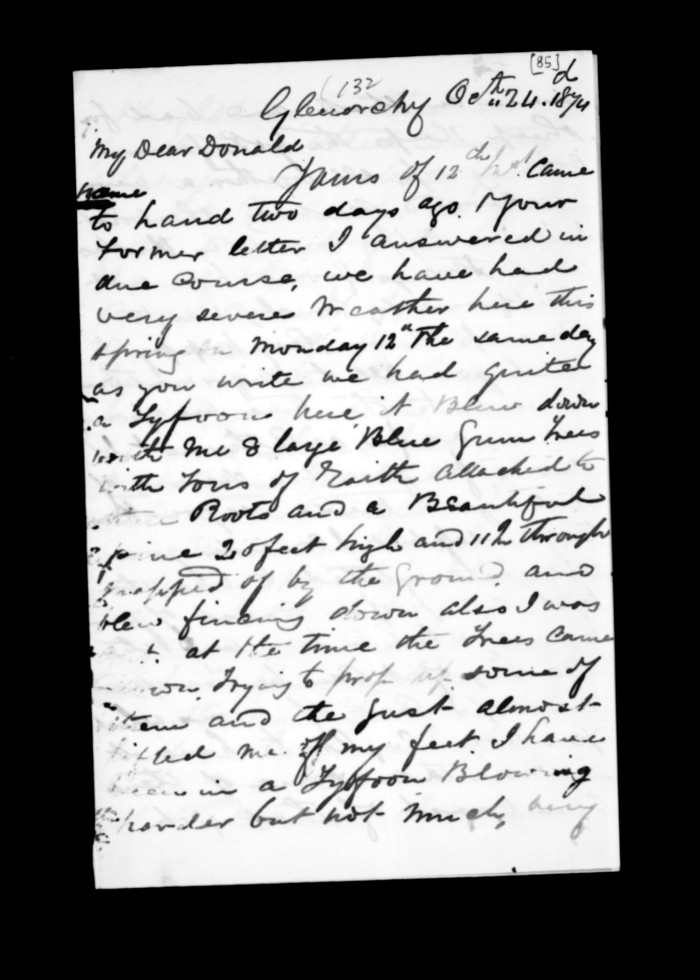 [85]
132
Glenorchy Octr 24th 1874
My Dear Donald
Yours of 12th Inst. Came
to hand two days ago. Your
former letter I answered in
due Course, we have had
very severe Weather here this
spring on Monday 12th The same day
as you write we had quite
a Tyfoon here, it Blew down
with me 8 large Blue Gum Trees
with Tons of Earth attached to
Roots and a Beautiful
pine 20 feet high and 11 In through
snapped of by the Ground and
blew fincing down also I was
at the time the Trees Came
down Trying to prop up some of
them and the gust almost
lifted me off my feet. I have
been in a Tyffoon Blowing
harder but not much, very